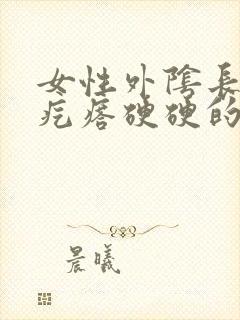 女性外陰長
疙瘩硬硬的
晨曦